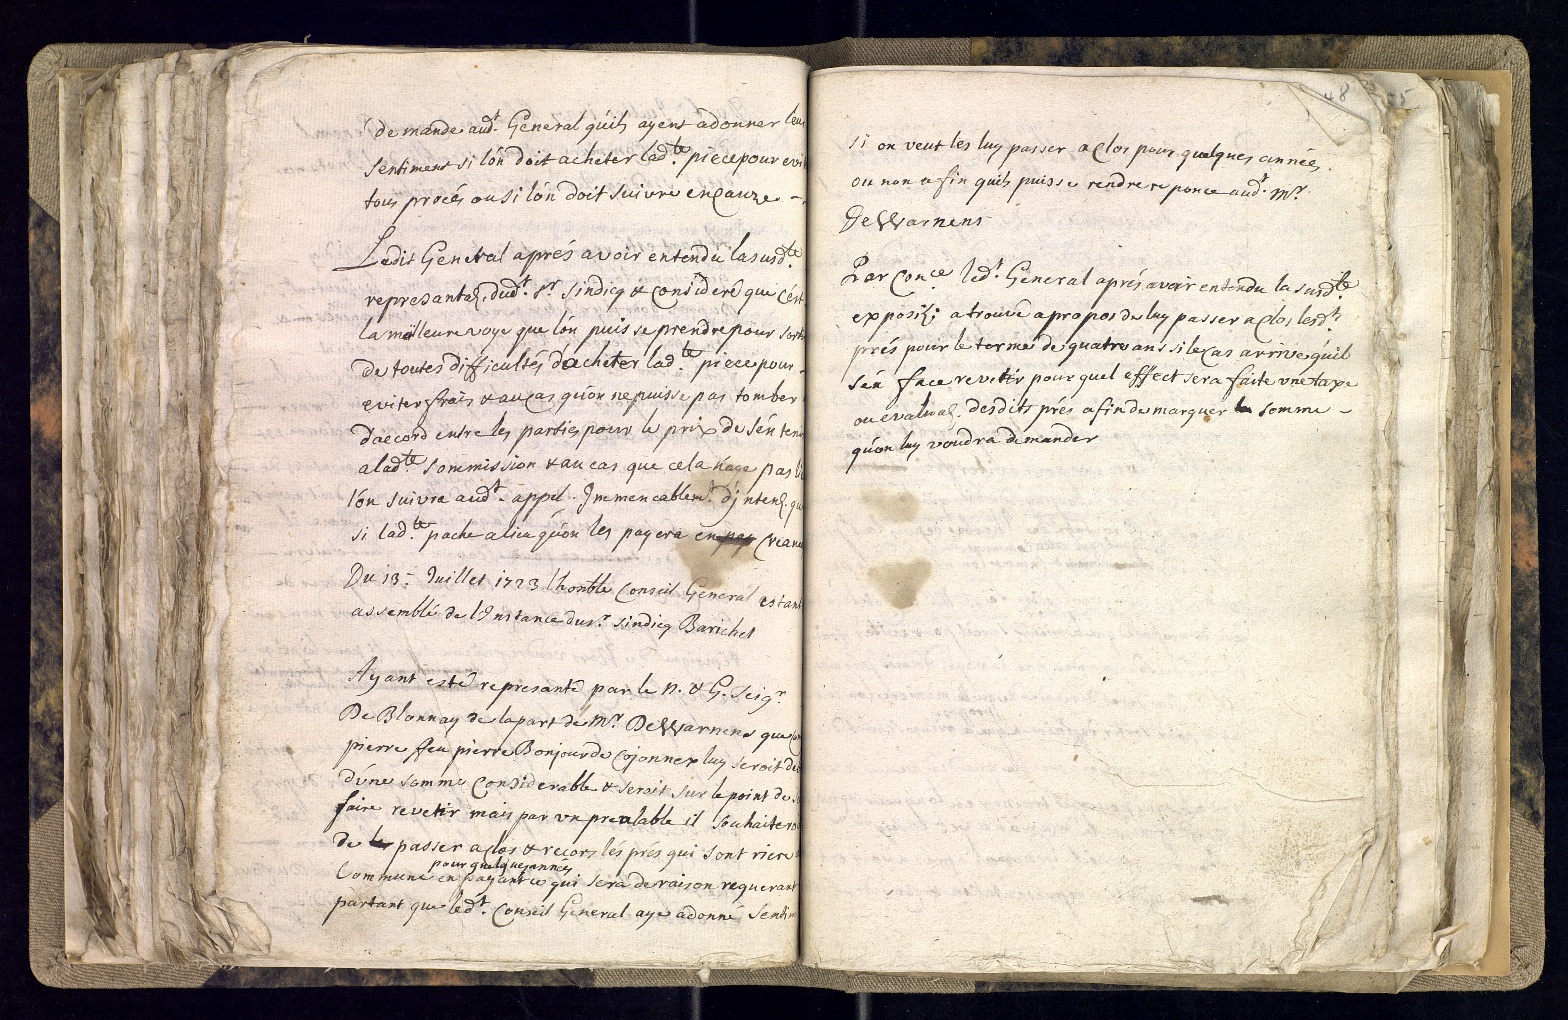 demande aud.t General quils ayent adonner leur
sentiment si lón doit acheter lad.te piece pour evi
tous procés ou si lón doit suivre en Cauze -
Ledit General aprés avoir entendu la susd.te
represantaō. dud.t s.r Sindicq & Consideré que Cést
la meilleure voye que lón puisse prendre pour sorti
de toutes difficultés d'acheter lad.te piece pour -
eviter frais & au cas quón ne puisse pas tomber
d'accord entre les parties pour le prix de sén tenir
a lad.te sommission & au cas que cela n'aye pas
lón suivra aud.t appel. Immencablem.t d'jntenō. que
si lad.te pache a lieu quón les payera en Creance
Du 13.e Juillet 1723 lhonble Conseil General estant
assemblé de lInstance du s.r sindicq Barichet
Ayant esté represanté par le N. & G. Seig.r
De Blonnay de la part de M.r DeWarnens que
pierre ffeu pierre Bonjour de Cojonnex luy seroit de
dúne somme Considerable & seroit sur le point de s
faire revetir mais par vn prealable il souhaiteroi
de passer a clos & recors lés prés qui sont riere
pour quelques année
Commune en payant ce qui sera de raison requerant
partant que led.t Conseil General aye adonné sentim
48 25
si on veut les luy passer a Clos pour quelques année
ou non afin quils puisse rendre reponce aud.t M.r
DeWarnens
Par Con.ce led.t General aprés avoir entendu la susd.te
exposiō; a trouvé a propos de luy passer a Clos lesd.ts
prés pour le terme de quatre ans si le Cas arrive quil
sén face revetir pour quel effect sera faite vne taxe
ou evaluaō. desdits prés afin de marquer la somme -
quón luy voudra demander